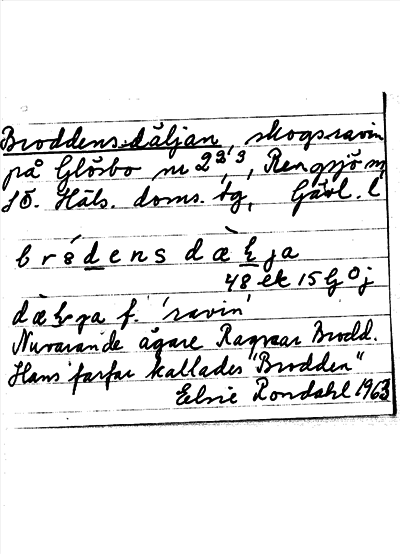 Broddens däljan, skogsravin
på Glösbo nr 2 2, 3, Rengsjö sn,
SÖ. Häls. doms. tg, Gävl. l
brødens dæɫja
48 ek 15 G Oj
dæɫja f. 'ravin'
Nuvarande ägare Ragnar Brodd.
Hans farfar kallades "Brodden"
Elsie Rondahl 1963